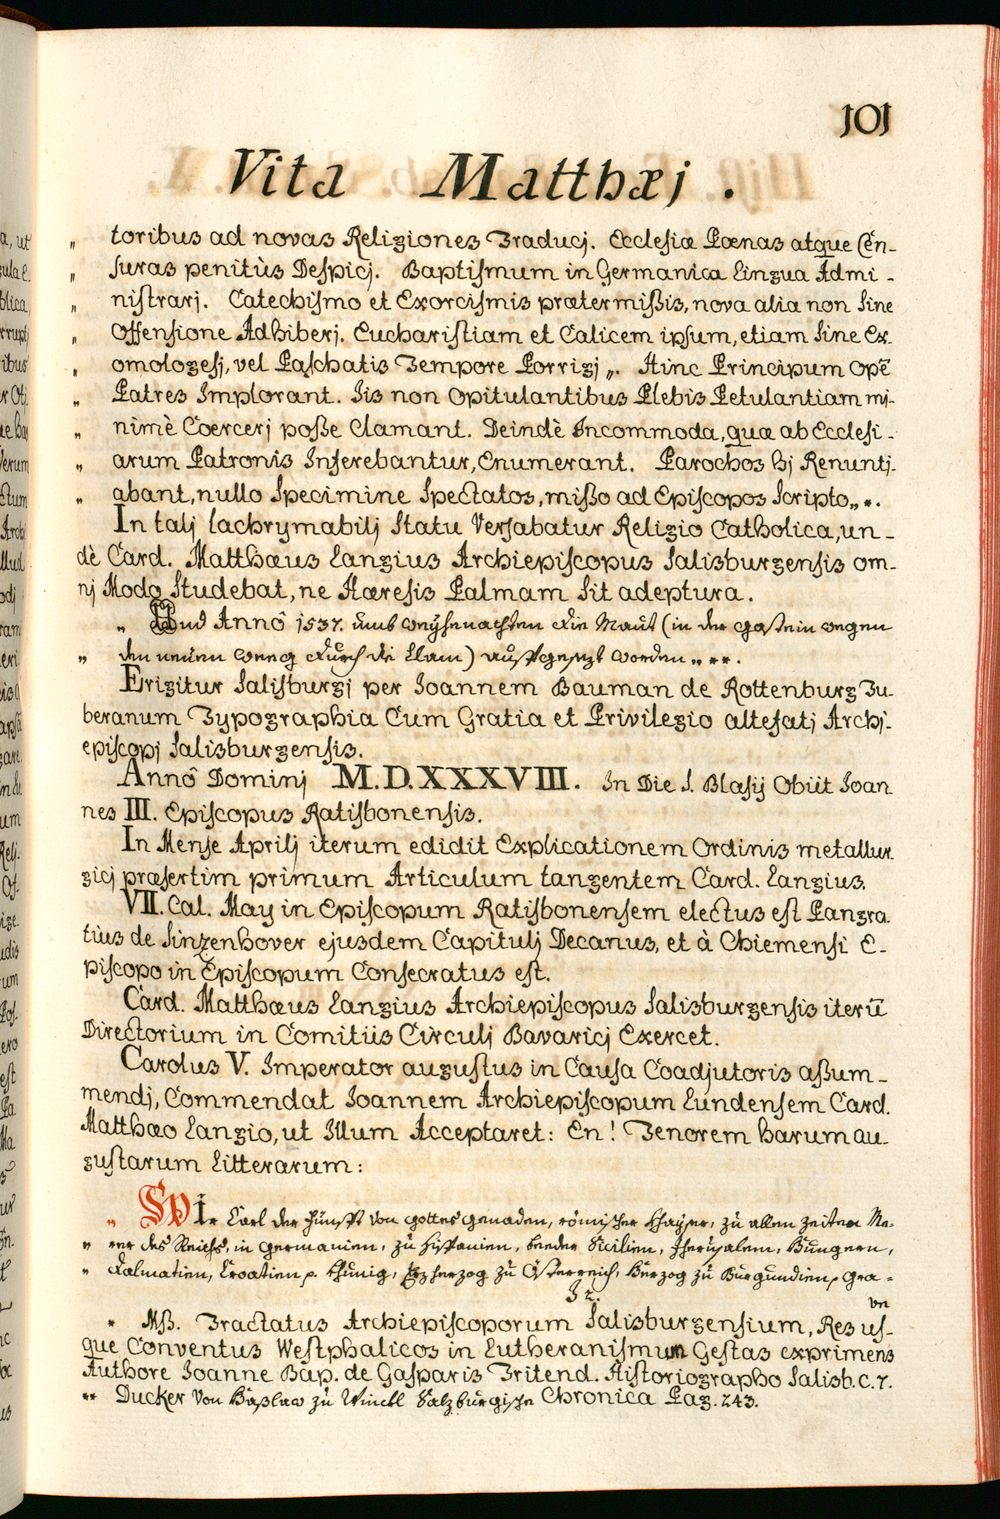 101
Vita Matthæj .
„ toribus ad novas Religiones Traducj. Ecclesiæ Pœnas atque Cen-
„ suras penitùs Despicj. Baptismum in Germanica Lingua Admi-
„ nistrarj. Catechismo et Exorcismis prætermißis, nova alia non Sine
„ Offensione Adhiberj. Eucharistiam et Calicem ipsum, etiam Sine Ex-
„ omologesj, vel Paschatis Tempore Porrigj„. Hinc Principum opē
„ Patres Implorant. Iis non Opitulantibus Plebis Petulantiam mi-
„ nimè Coercerj poße Clamant. Deindè Incommoda, quæ ab Ecclesi-
„ arum Patronis Inferebantur, Enumerant. Parochos hj Renuntj-
„ abant, nullo Specimine Spectatos, mißo ad Episcopos Scripto„*.
In talj lachrymabilj Statu Versabatur Religio Catholica, un-
dè Card. Matthæus Langius Archiepiscopus Salisburgensis om-
nj Modo Studebat, ne Hæresis Palmam Sit adeptura.
„ Und Annô 1537. umb Weyhenachten die Maut (in der Gastein wegen
„ den neuen Weeg durch die Clam) auffgesezt worden„**.
Erigitur Salisburgj per Joannem Bauman de Rottenburg Tu-
beranum Typographia Cum Gratia et Privilegio altefatj Archj-
episcopj Salisburgensis.
Annô Dominj M.D.XXXVIII. In Die S. Blasij Obiit Joan
nes III. Episcopus Ratisbonensis.
In Mense Aprilj iterum edidit Explicationem Ordinis metallur-
gicj præsertim primum Articulum tangentem Card. Langius.
VII. Cal. May in Episcopum Ratisbonensem electus est Pangra-
tius de Sinzenhover ejusdem Capitulj Decanus, et à Chiemensi E-
piscopo in Episcopum Consecratus est.
Card. Matthæus Langius Archiepiscopus Salisburgensis iterū
Directorium in Comitiis Circulj Bavaricj Exercet.
Carolus V. Imperator augustus in Causa Coadjutoris aßum-
mendj, Commendat Joannem Archiepiscopum Lundensem Card.
Matthæo Langio, ut Illum Acceptaret: En! Tenorem harum au-
gustarum Litterarum:
„ Wir Carl der Fünfft von Gottes Genaden, römischer Khayser, zu allen Zeiten Me-
„ rer des Reichs, in Germanien, zu Hispanien, beeder Sicilien, Jherusalem, Hungern,
„ Dalmatien, Croatien p. Khünig, Erzherzog zu Österreich, Herzog zu Burgundien p Gra-
ve
* Mß. Tractatus Archiepiscoporum Salisburgensium, Res us-
que Conventus Westphalicos in Lutheranismum Gestas exprimens
Authore Joanne Bap. de Gasparis Tritend. Historiographo Salisb. C. 7.
** Ducker von Haßlaw zu Winckl Salzburgische Chronica Pag. 243.